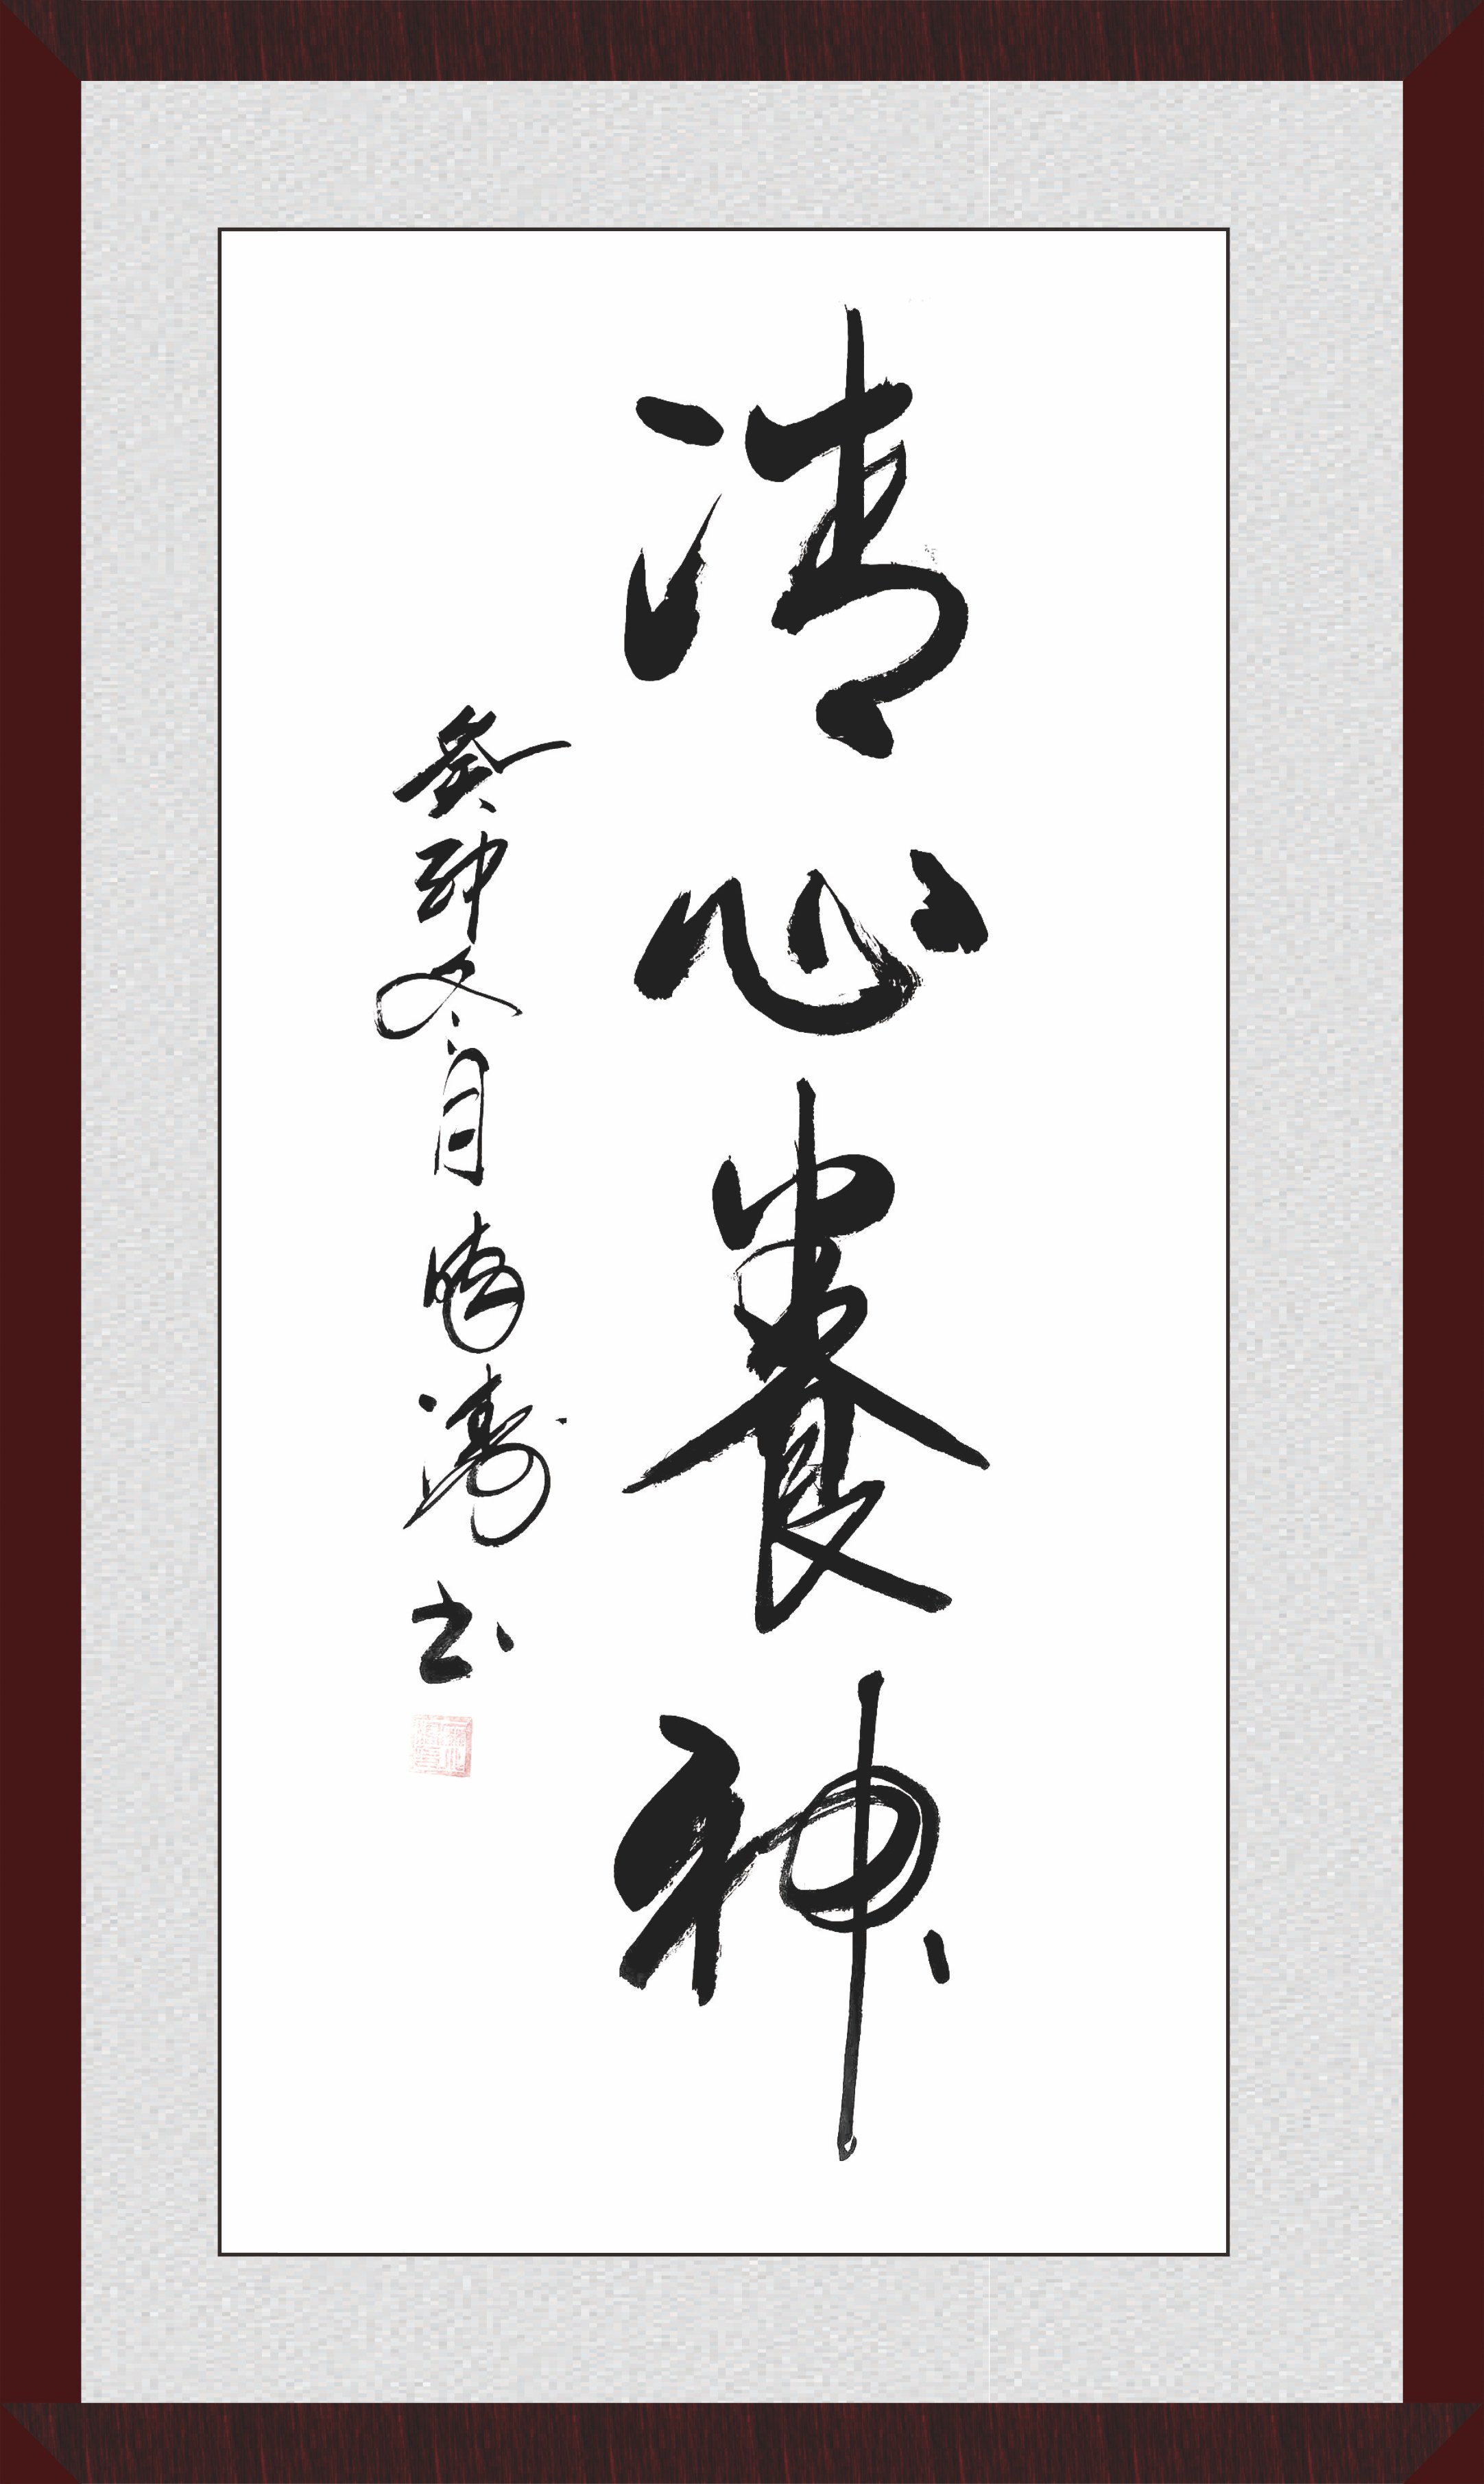 清心養神
癸卯冬月曉濤书